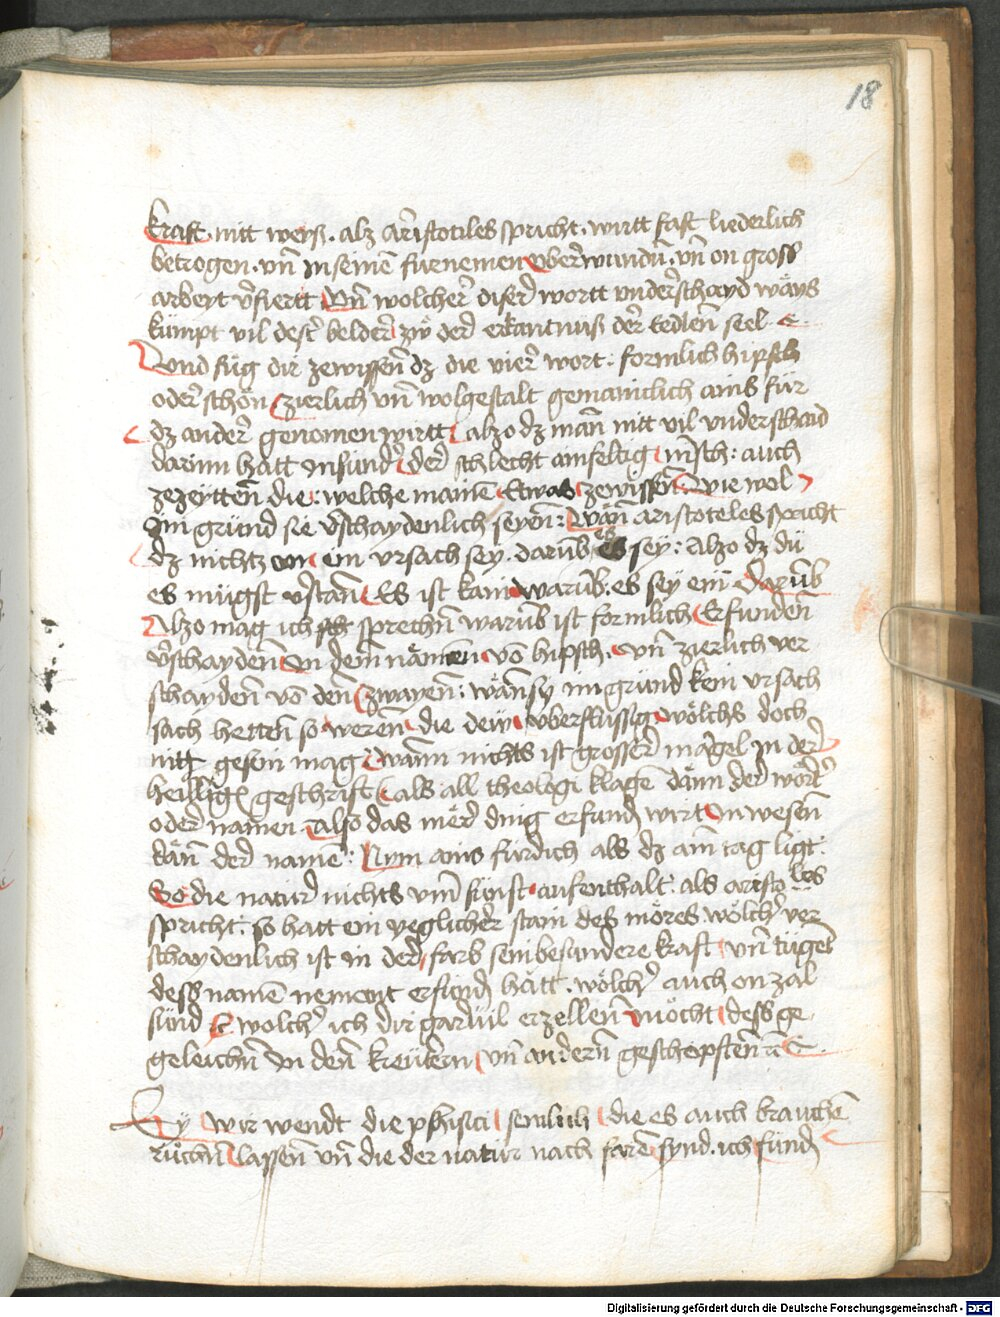 18
kraft nitt weyß. alz aristotiles spricht. wirtt fast liederlich
betrogen. vn̄ in seinē furnemen vberwundn̄. vn̄ on gross
arbeyt v̉fiertt Vn̄ wolcher diser wortt vnderschayd wäys
kümpt vil dest belder zw̆ der erkantnuß der edlen̄ seel
Vnd füg dir zewissen̄ dz die vier wort: formlich hipsch
oder schön zierlich vn̄ wolgestalt gemainlich ains für
dz ander genomen wirtt alzo dz man̄ nitt vil vnderschaid
darinn hatt Insund der schlecht ainfeltig mēsch: auch
zezeytten̄ die: welche mainē Etwas zewissen̄ Wie wol
Im gründ sie v̉schaydenlich seyen̄: Wän̄ aristoteles spricht
dz nichtz on ein vrsach sey. darūb es sey: Alzo dz dü
es mügst v̉stan̄ Es ist kain warūb. es sey ein Darūb
Alzo mag ich sprechn̄ warūb ist formlich Erfunden̄
v̉schayden̄ In dem namen vō hipsch. vn̄ zierlich ver
schayden̄ vō den̄ zwayen̄: wän̄ sy im gründ kein vrsach
sach hetten̄ so weren̄ die dew vberflüssig wölchs doch
nitt gesein mag wann nichts ist grosser mägel in der
heilligē geschrift als all theologi klagē dänn der wört
oder namen Also das mer ding erfund wirt In wesen̄
dän̄ der namē: Nym ains für dich als dz am̄ tag ligt:
So die natur nichts vmsünst aufenthalt: als aristoles
spricht: so hatt ein yeglicher stain des möres wölch ver
schaydenlich ist in der farb sein besundere kraft vn̄ tügēt
dess namē nement erfund hatt. wölch auch on zal
sünd wolch ich dir garvil erzellen̄ möcht dess ge
geleichn̄ in den̄ kreütern vn̄ andern̄ geschepften̄
Hy wir wendt die phisici semlich die es auch brauchē
rüchn̄ lassen̄ vn̄ die der natur nach farē synd. ich fünd
Digitalisierung gefördert durch die Deutsche Forschungsgemeinschaft - DFG